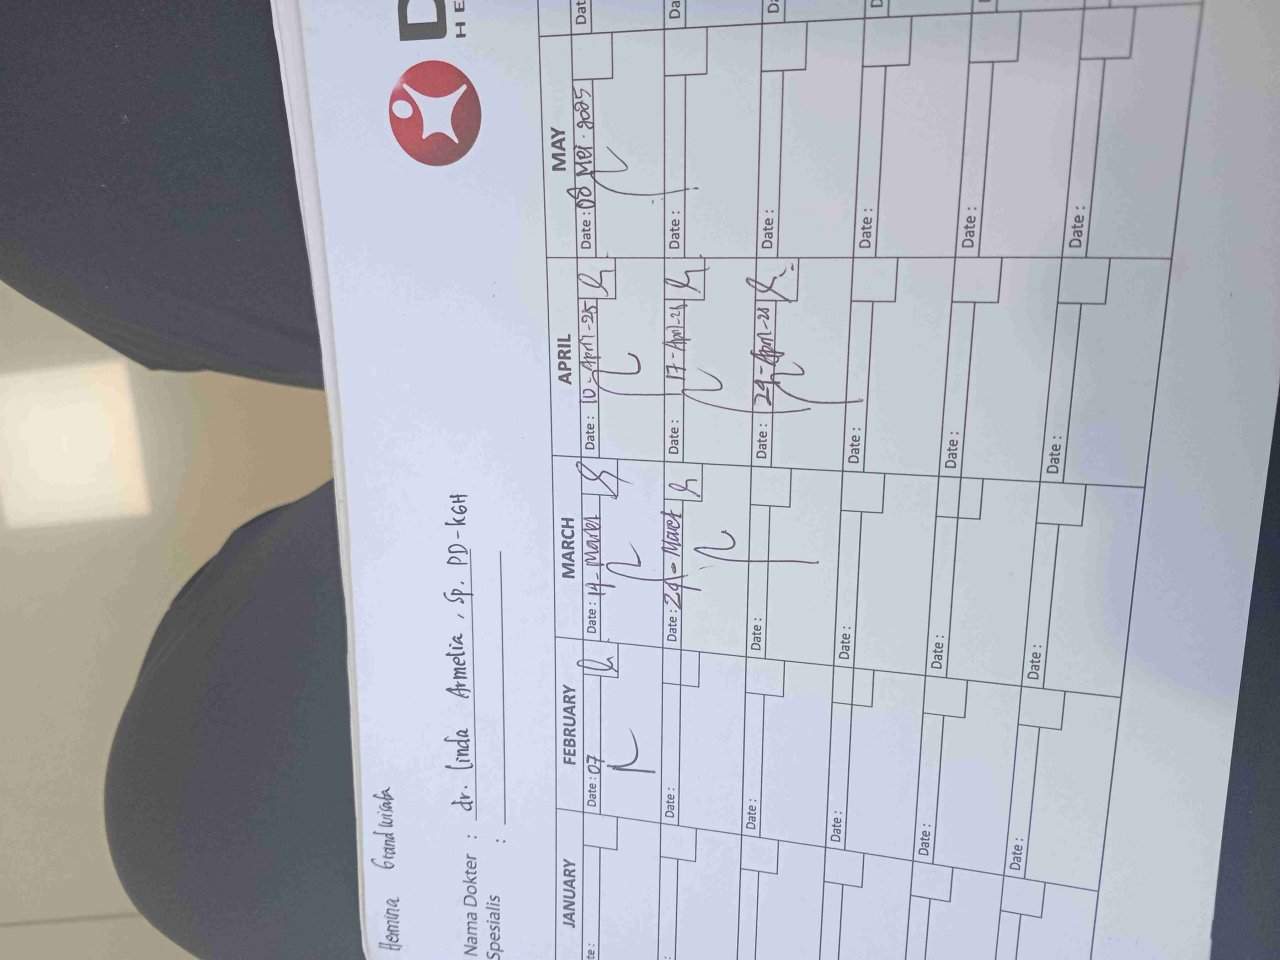 D
HE
Hemina Grand Wisata
Nama Dokter : dr. Linda Armelia, Sp. PD-KGH
Spesialis :
JANUARY FEBRUARY MARCH APRIL MAY
te: Date: 07 Date: 14-Maret Date: 10-April-25 Date: 08 Mei 2025 Dat
: Date: Date: 24-Maret Date: 17-April-25 Date: Da
Date: Date: Date: 29-April-25 Date: Da
Date: Date: Date: Date: D
Date: Date: Date: Date:
Date: Date: Date: Date: